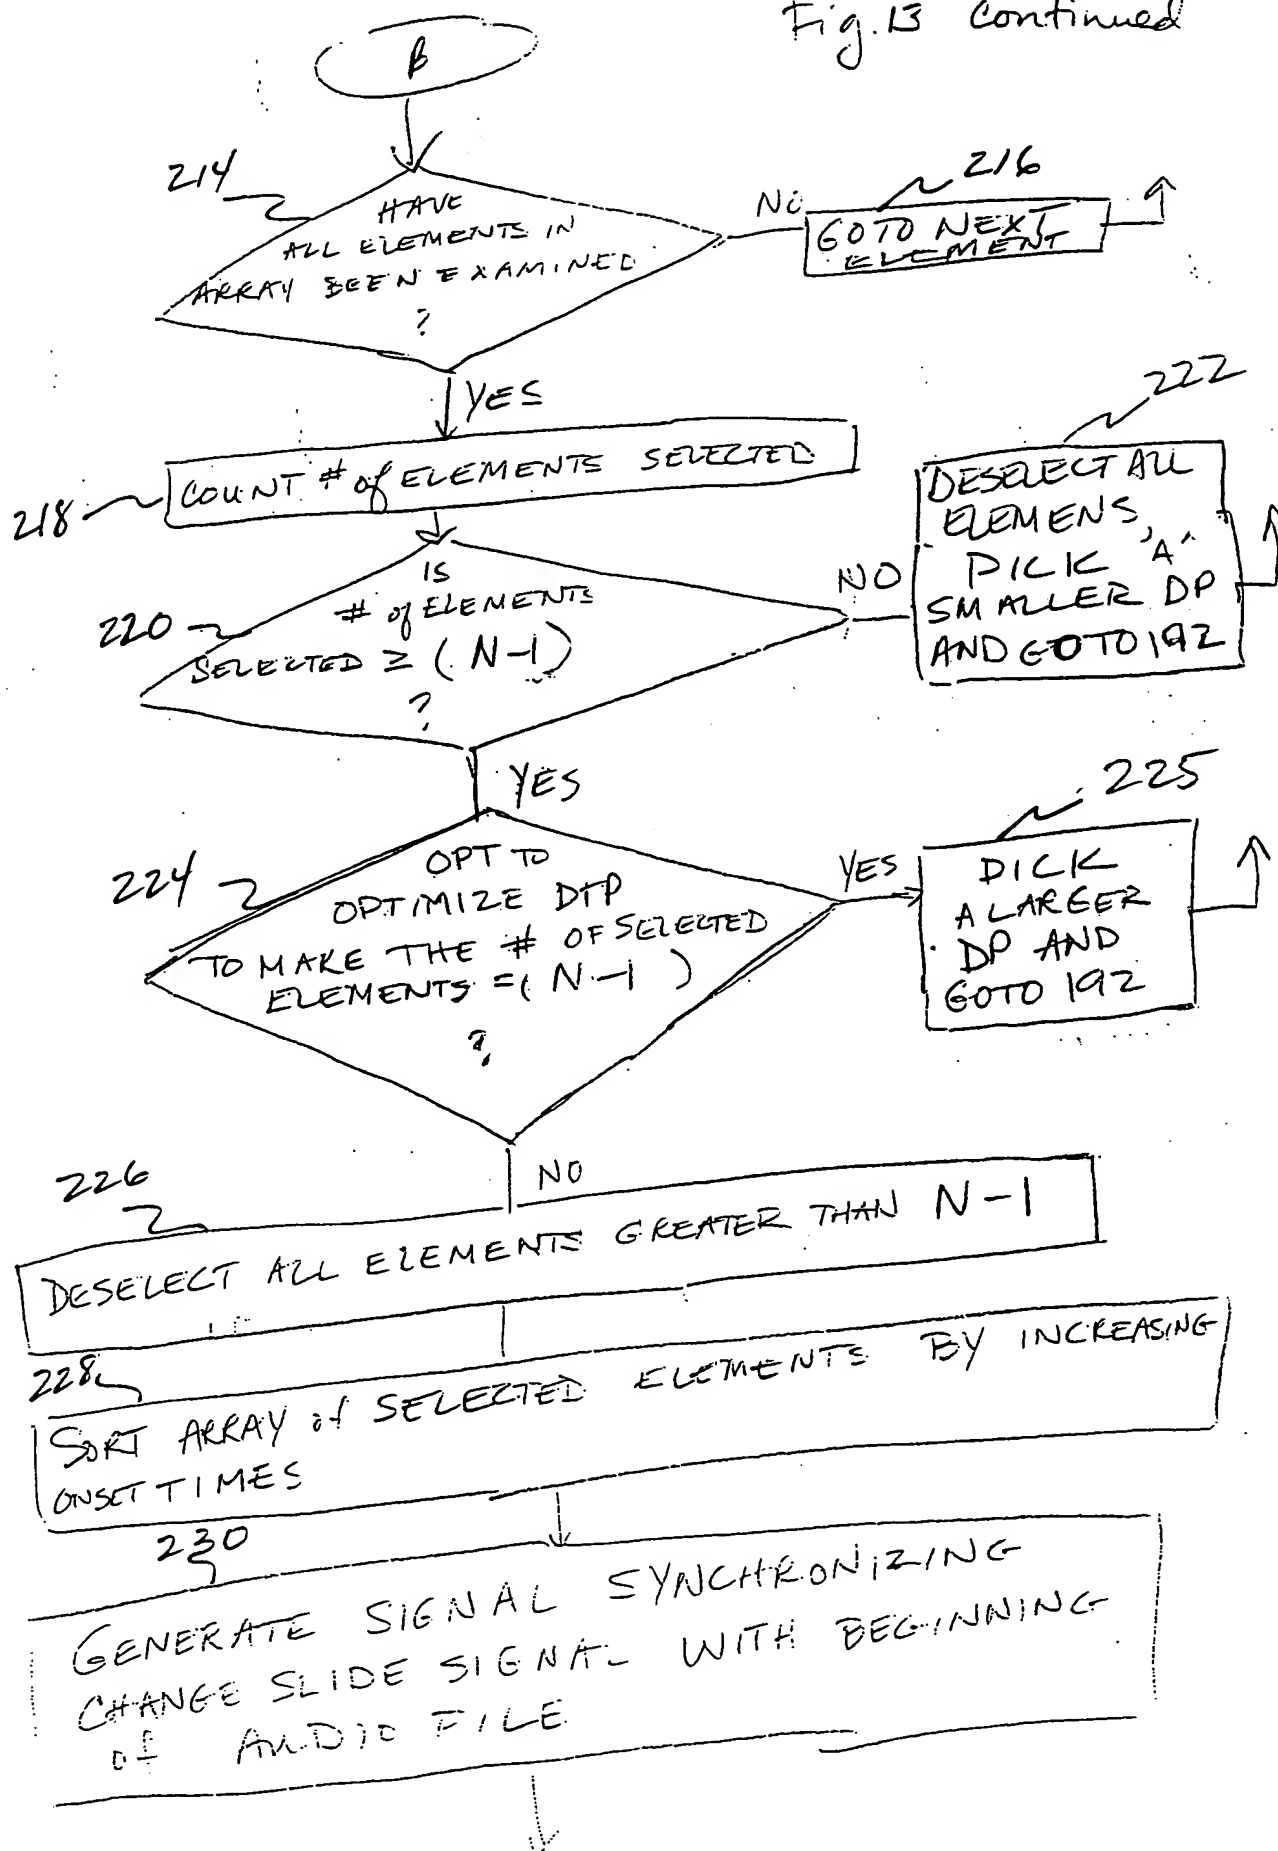 Fig. 13 Continued
B
214
HAVE
ALL ELEMENTS IN
ARRAY BEEN EXAMINED
?
NO
216
GOTO NEXT
ELEMENT
YES
218
COUNT # of ELEMENTS SELECTED
220
IS
# of ELEMENTS
SELECTED ≥ (N-1)
?
NO
222
DESELECT ALL
ELEMENS,
PICK "A"
SMALLER DP
AND GOTO 192
YES
224
OPT TO
OPTIMIZE DTP
TO MAKE THE # OF SELECTED
ELEMENTS = (N-1)
?
YES
225
PICK
A LARGER
DP AND
GOTO 192
NO
226
DESELECT ALL ELEMENTS GREATER THAN N-1
228
SORT ARRAY of SELECTED ELEMENTS BY INCREASING
ONSET TIMES
230
GENERATE SIGNAL SYNCHRONIZING
CHANGE SLIDE SIGNAL WITH BEGINNING
of AUDIO FILE